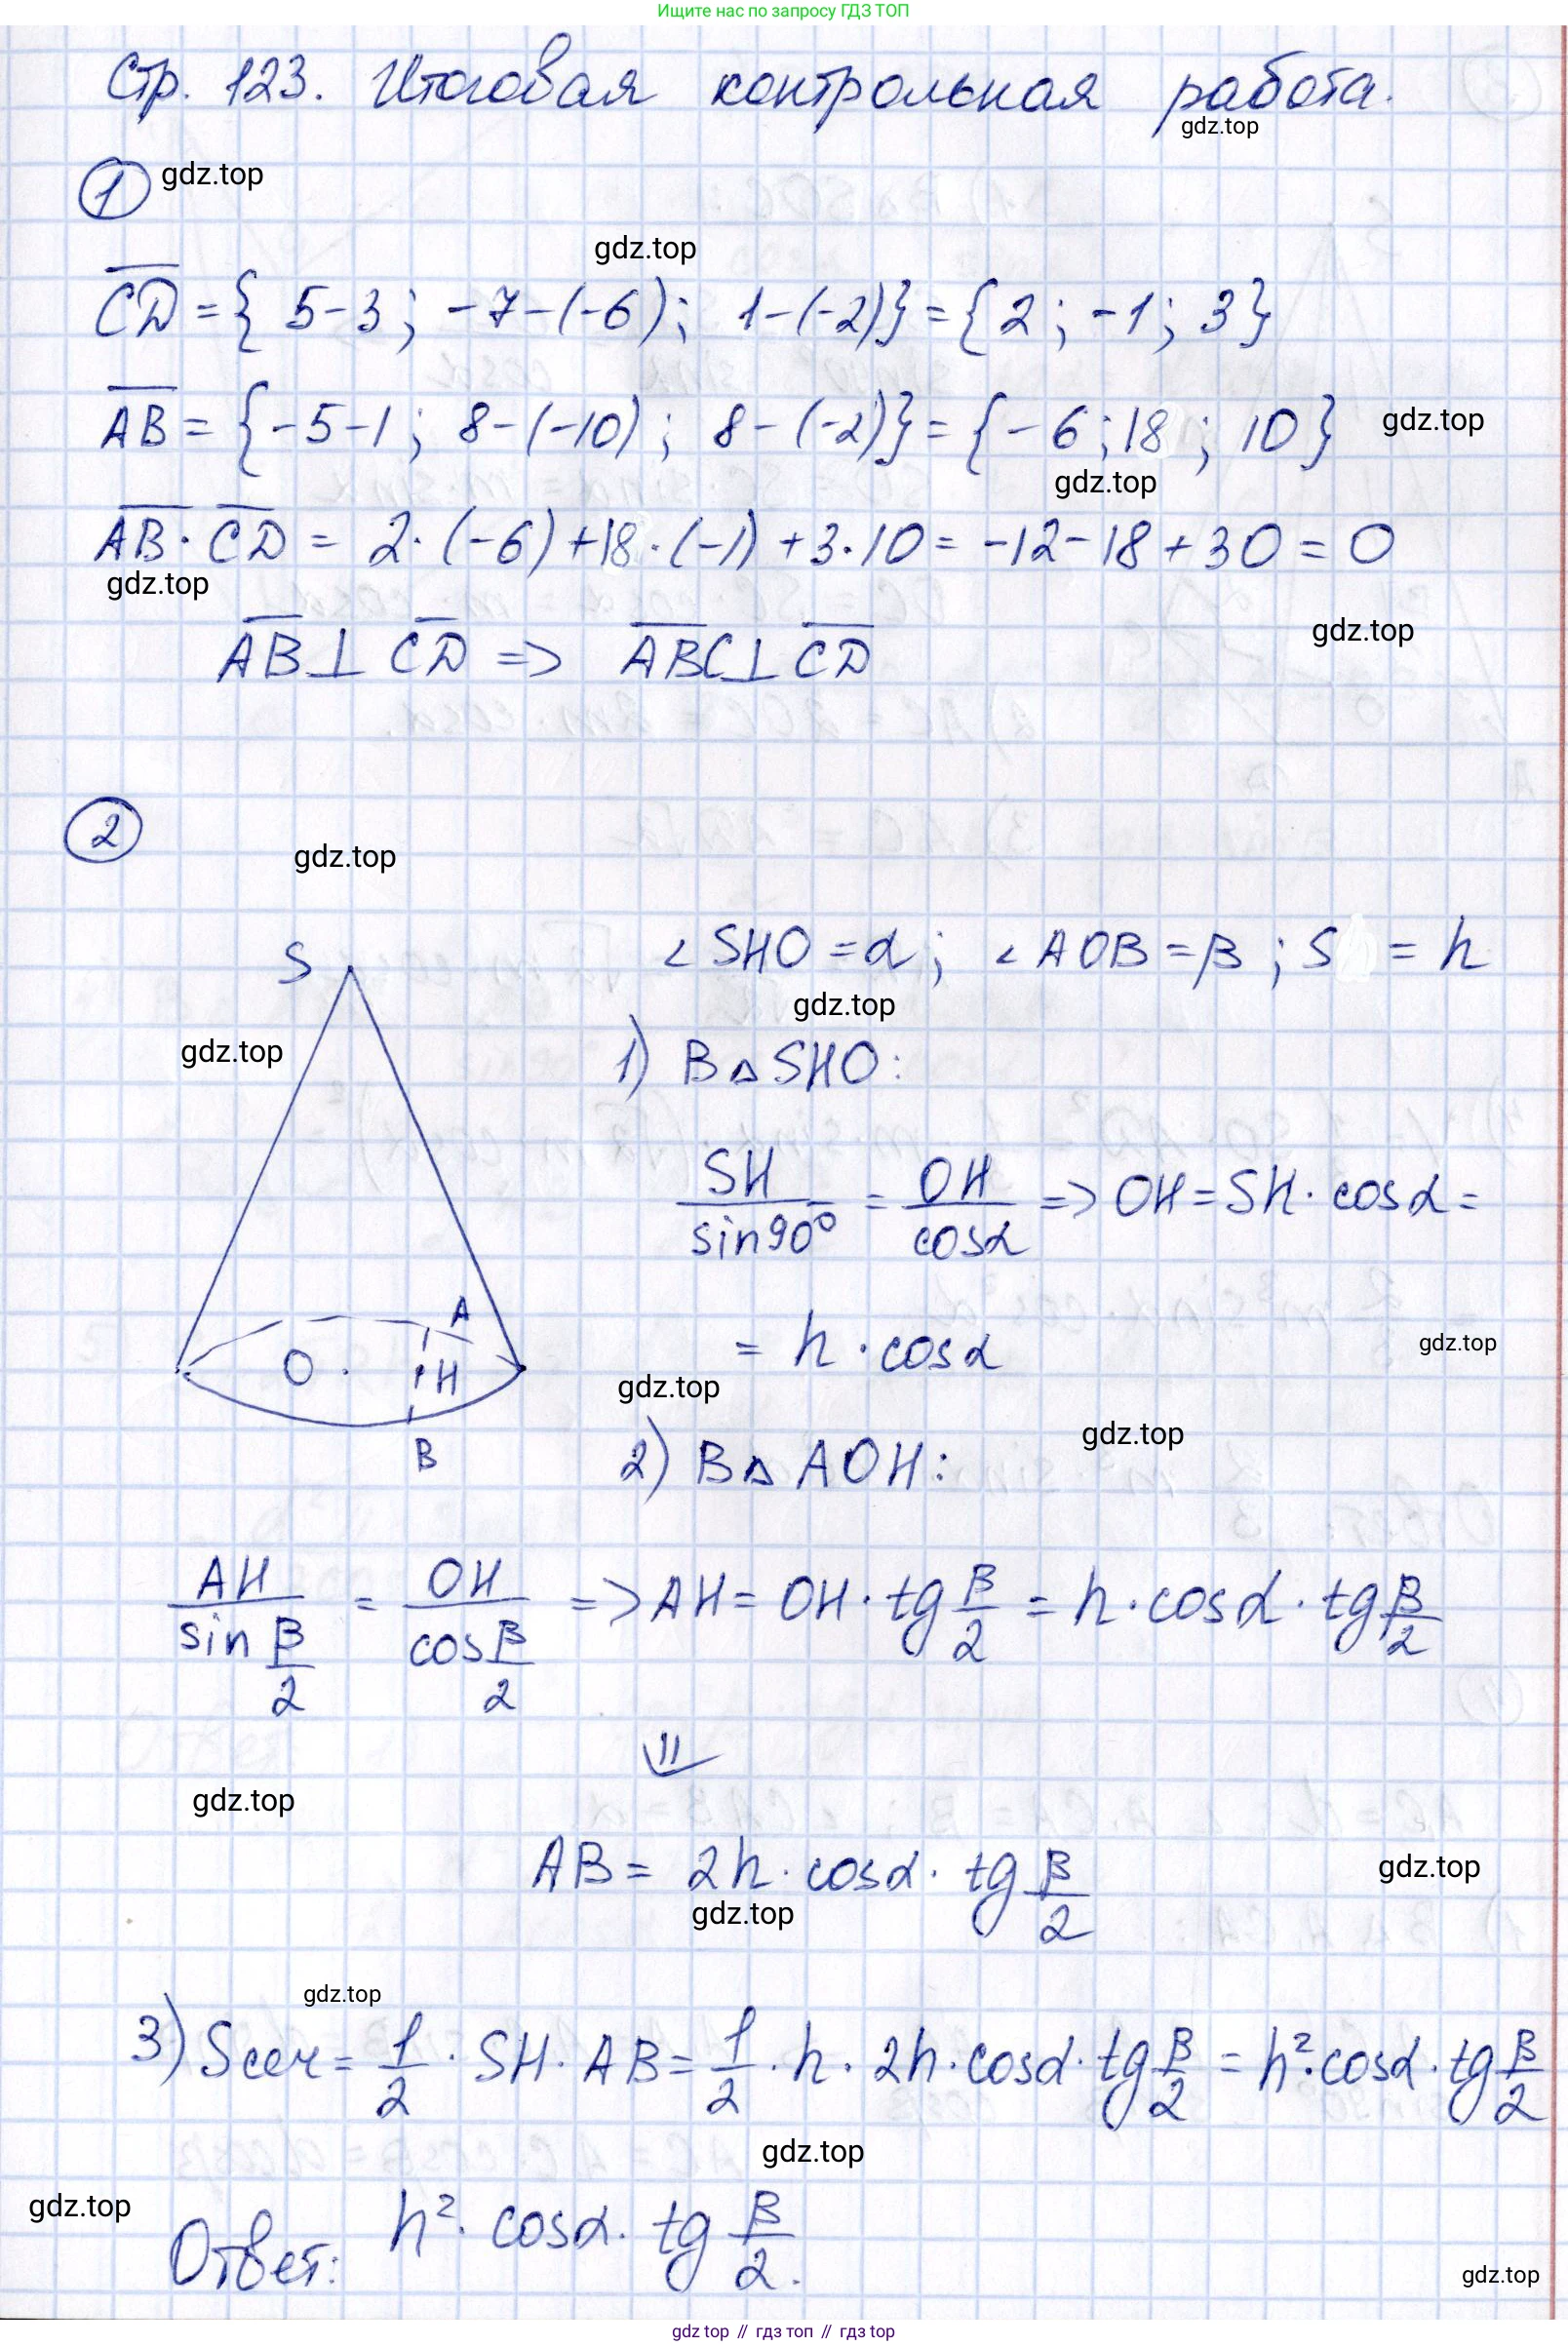 Ищите нас по запросу ГДЗ ТОП
Стр. 123. Итоговая контрольная работа.
gdz.top
1 gdz.top
gdz.top
CD = { 5-3; -7-(-6); 1-(-2)} = {2; -1; 3}
AB = {-5-1; 8-(-10); 8-(-2)} = {-6; 18; 10} gdz.top
gdz.top
AB · CD = 2·(-6)+18·(-1)+3·10 = -12-18+30 = 0
gdz.top
gdz.top
AB ⊥ CD => ABC ⊥ CD
2
gdz.top
S
∠SHO = α; ∠AOB = β; S = h
gdz.top
gdz.top
1) В △SHO:
SH/sin90° = OH/cosα => OH = SH · cosα =
A
= h · cosα gdz.top
O H
gdz.top
gdz.top
B
2) В △ AOH:
AH/sin β/2 = OH/cos β/2 => AH = OH · tg β/2 = h · cosα · tg β/2
⇓
gdz.top
AB = 2h · cosα · tg β/2 gdz.top
gdz.top
gdz.top
3) Sсеч = 1/2 · SH · AB = 1/2 · h · 2h · cosα · tg β/2 = h² · cosα · tg β/2
gdz.top
gdz.top
Ответ: h² · cosα · tg β/2.
gdz.top
gdz top // гдз топ // гдз top